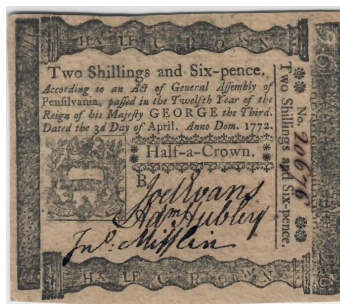 HALF A CROWN
Two Shillings and Six-pence.
According to an Act of General Assembly of
Pensilvania, passed in the Twelfth Year of the
Reign of his Majesty GEORGE the Third.
Dated the 3d Day of April, Anno Dom. 1772.
Half-a-Crown.
B
Joel Evans
Adm Hubley
Jno. Mifflin
No. 20676
Two Shillings and Six-pence.
HALF A CROWN